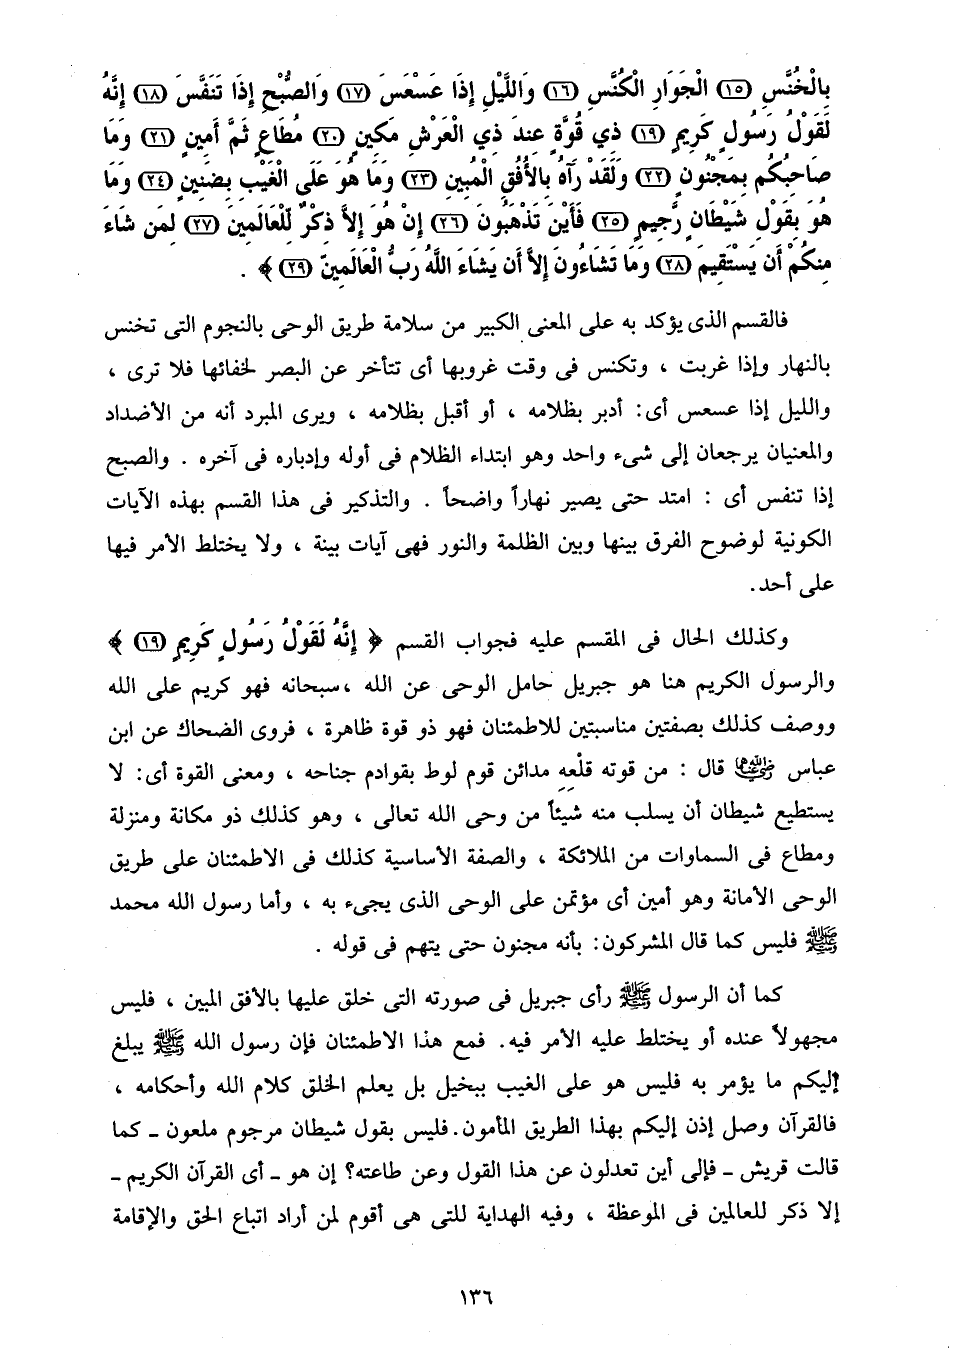 بِالْخُنَّسِ (١٥) الْجَوَارِ الْكُنَّسِ (١٦) وَاللَّيْلِ إِذَا عَسْعَسَ (١٧) وَالصُّبْحِ إِذَا تَنَفَّسَ (١٨) إِنَّهُ
لَقَوْلُ رَسُولٍ كَرِيمٍ (١٩) ذِي قُوَّةٍ عِندَ ذِي الْعَرْشِ مَكِينٍ (٢٠) مُطَاعٍ ثَمَّ أَمِينٍ (٢١) وَمَا
صَاحِبُكُم بِمَجْنُونٍ (٢٢) وَلَقَدْ رَآهُ بِالأُفُقِ الْمُبِينِ (٢٣) وَمَا هُوَ عَلَى الْغَيْبِ بِضَنِينٍ (٢٤) وَمَا
هُوَ بِقَوْلِ شَيْطَانٍ رَّجِيمٍ (٢٥) فَأَيْنَ تَذْهَبُونَ (٢٦) إِنْ هُوَ إِلاَّ ذِكْرٌ لِّلْعَالَمِينَ (٢٧) لِمَن شَاءَ
مِنكُمْ أَن يَسْتَقِيمَ (٢٨) وَمَا تَشَاءُونَ إِلاَّ أَن يَشَاءَ اللَّهُ رَبُّ الْعَالَمِينَ (٢٩) ﴾ .
فالقسم الذى يؤكد به على المعنى الكبير من سلامة طريق الوحى بالنجوم التى تخنس
بالنهار وإذا غربت ، وتكنس فى وقت غروبها أى تتأخر عن البصر لخفائها فلا ترى ،
والليل إذا عسعس أى: أدبر بظلامه ، أو أقبل بظلامه ، ويرى المبرد أنه من الأضداد
والمعنيان يرجعان إلى شىء واحد وهو ابتداء الظلام فى أوله وإدباره فى آخره . والصبح
إذا تنفس أى : امتد حتى يصير نهاراً واضحاً . والتذكير فى هذا القسم بهذه الآيات
الكونية لوضوح الفرق بينها وبين الظلمة والنور فهى آيات بينة ، ولا يختلط الأمر فيها
على أحد.
وكذلك الحال فى المقسم عليه فجواب القسم ﴿ إِنَّهُ لَقَوْلُ رَسُولٍ كَرِيمٍ (١٩) ﴾
والرسول الكريم هنا هو جبريل حامل الوحى عن الله ،سبحانه فهو كريم على الله
ووصف كذلك بصفتين مناسبتين للاطمئنان فهو ذو قوة ظاهرة ، فروى الضحاك عن ابن
عباس رضي الله عنهما قال : من قوته قلْعِه مدائن قوم لوط بقوادم جناحه ، ومعنى القوة أى: لا
يستطيع شيطان أن يسلب منه شيئاً من وحى الله تعالى ، وهو كذلك ذو مكانة ومنزلة
ومطاع فى السماوات من الملائكة ، والصفة الأساسية كذلك فى الاطمئنان على طريق
الوحى الأمانة وهو أمين أى مؤتمن على الوحى الذى يجىء به ، وأما رسول الله محمد
ﷺ فليس كما قال المشركون: بأنه مجنون حتى يتهم فى قوله .
كما أن الرسول ﷺ رأى جبريل فى صورته التى خلق عليها بالأفق المبين ، فليس
مجهولاً عنده أو يختلط عليه الأمر فيه. فمع هذا الاطمئنان فإن رسول الله ﷺ يبلغ
إليكم ما يؤمر به فليس هو على الغيب ببخيل بل يعلم الخلق كلام الله وأحكامه ،
فالقرآن وصل إذن إليكم بهذا الطريق المأمون. فليس بقول شيطان مرجوم ملعون ـ كما
قالت قريش ـ فإلى أين تعدلون عن هذا القول وعن طاعته؟ إن هو ـ أى القرآن الكريم ـ
إلا ذكر للعالمين فى الموعظة ، وفيه الهداية للتى هى أقوم لمن أراد اتباع الحق والإقامة
١٣٦